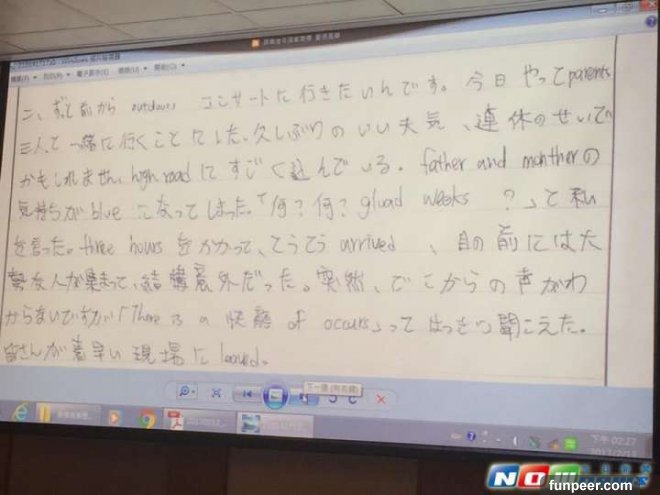 二、ずっと前から outdoors コンサートに行きたいんです。今日やってparents
三人で一緒に行くことにした。久しぶりのいい天気、連休のせいで
かもしれません、high roadにすごく込んでいる。father and montherの
気持ちがblueになってしまった。「何?何?gluad weeks ?」と私
を言った。three hoursをかかって、とうとうarrived、目の前には大
勢な人が集まって、結構意外だった。突然、どこからの声がわ
からないですが「There is a 快語 of occurs」ってはっきり聞こえた。
皆さんが着早い現場にleaved。
下一張 (向右鍵)
下午 02:27
NOW
funpeer.com